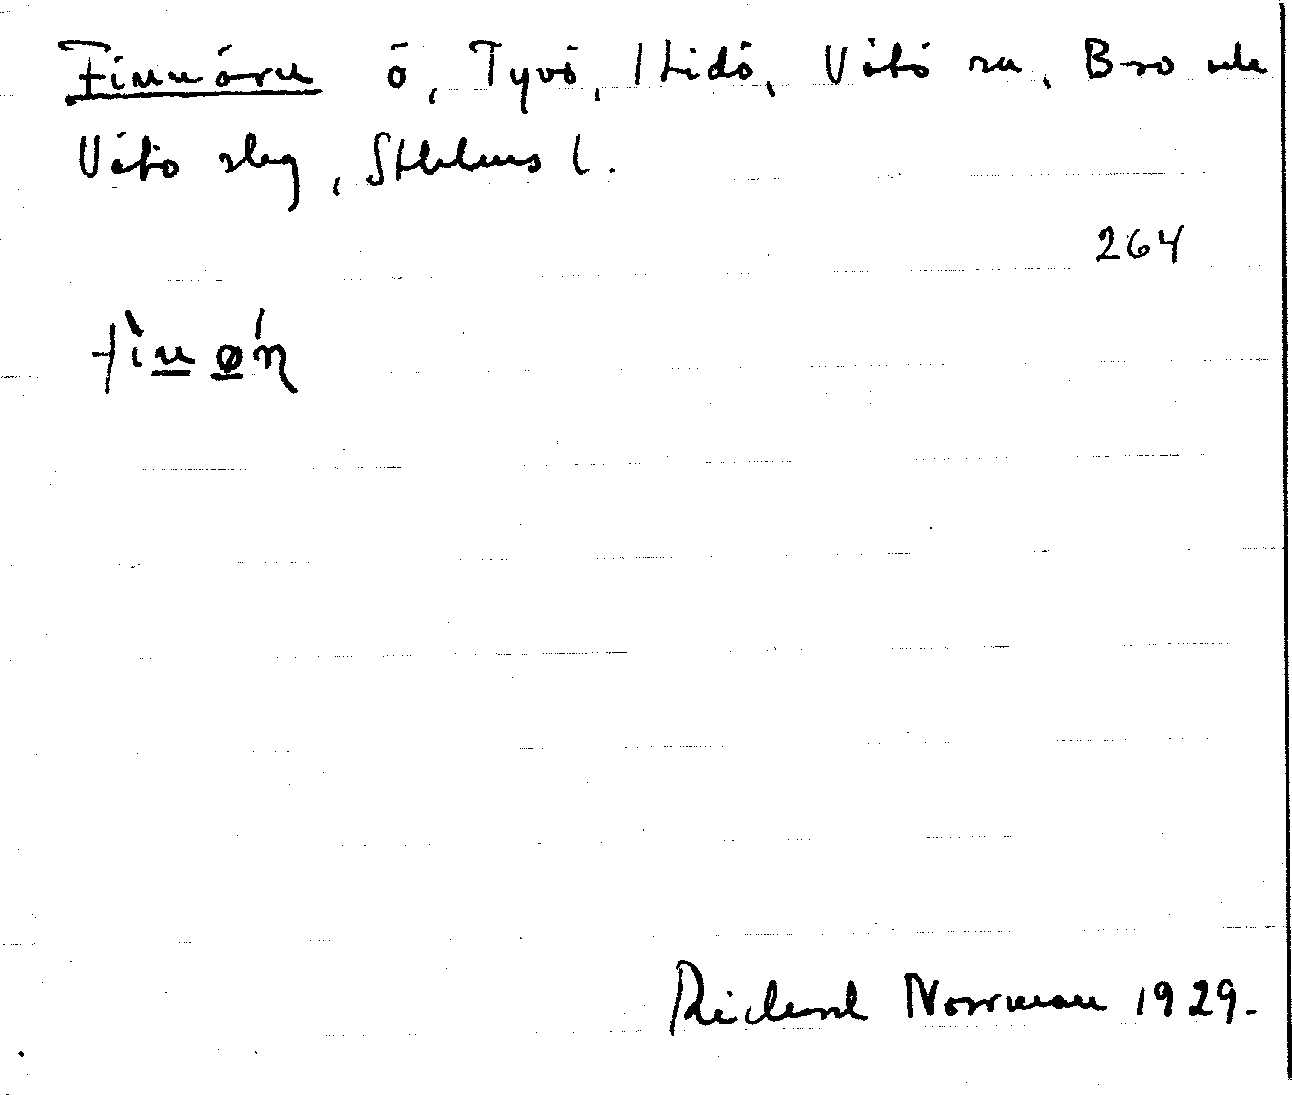 Finnören ö, Tyvö, Itidö, Vätö sn, Bro och
Vätö skg, Sthlms l.
264
fìnǿn
Richard Norrman 1929.